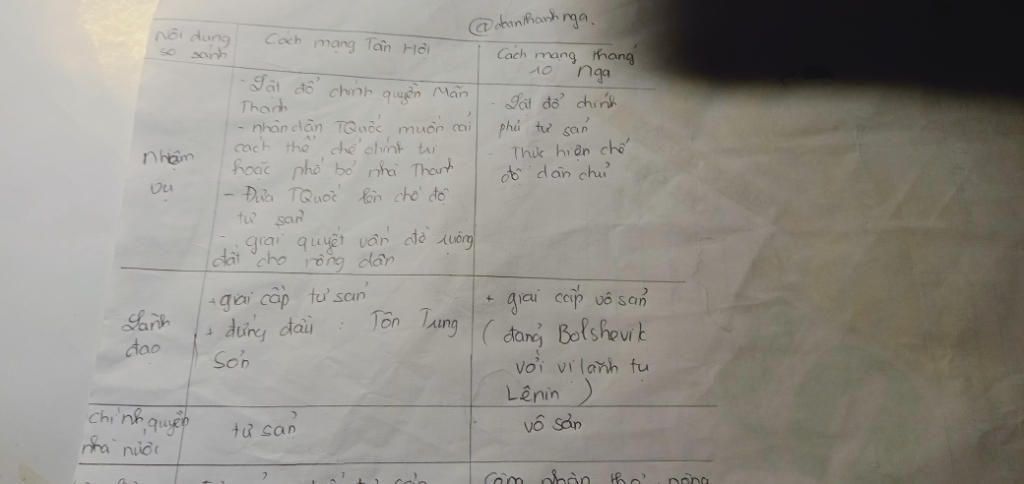 @doanthanhnga.
Nội dung so sánh
Cách mạng Tân Hợi
Cách mạng tháng 10 Nga
Nhiệm vụ
- Lật đổ chính quyền Mãn
Thanh
- nhân dân TQuốc muốn cải
cách thể chế chính trị
hoặc phế bỏ nhà Thanh
- Đưa TQuốc lên chế độ
tư sản
- giải quyết vấn đề ruộng
đất cho nông dân
- Lật đổ chính
phủ tư sản
- Thực hiện chế
độ dân chủ
Lãnh đạo
+ giai cấp tư sản
+ đứng đầu : Tôn Trung
Sơn
+ giai cấp vô sản
( đảng Bolshevik
với vị lãnh tụ
Lênin )
chính quyền
nhà nước
tư sản
vô sản